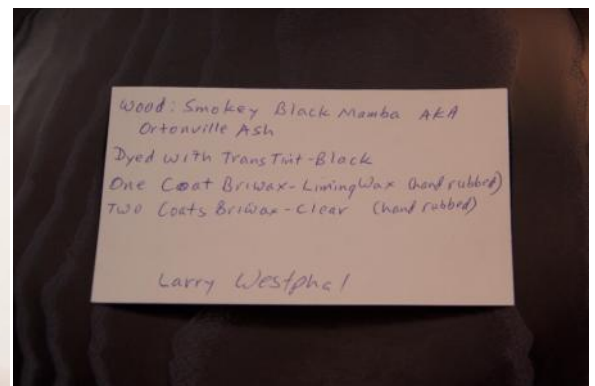 Wood: Smokey Black Mamba AKA
Ortonville Ash
Dyed with TransTint-Black
One Coat Briwax-LimingWax (hand rubbed)
Two Coats Briwax-Clear (hand rubbed)
Larry Westphal